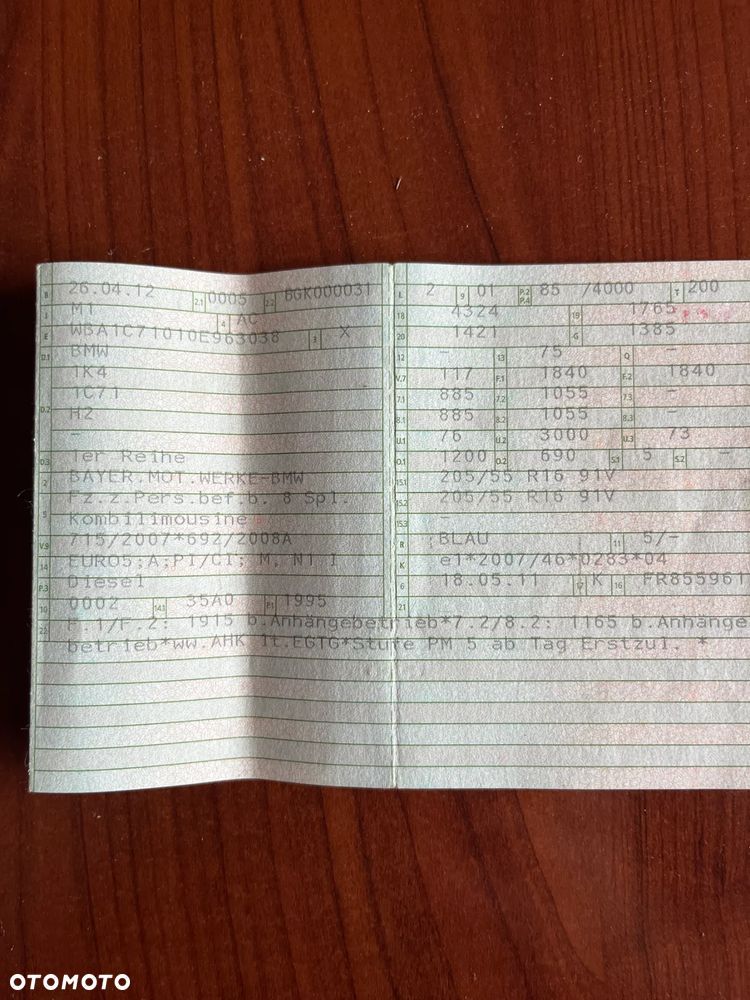 B 26.04.12 2.1 0005 2.2 BGK000031
J M1 4 AC
E WBA1C71010E963038 3 X
D.1 BMW
1K4
D.2 1C71
H2
-
D.3 1er Reihe
2 BAYER.MOT.WERKE-BMW
5 Fz.z.Pers.bef.b. 8 Spl.
Kombilimousine
V.9 715/2007*692/2008A
14 EURO5;A;PI/CI; M, N1 I
P.3 Diesel
10 0002 14.1 35A0 P.1 1995
L 2 9 01 P.2 P.4 85 /4000 T 200
18 4324 19 1765
20 1421 G 1385
12 - 13 75 Q -
V.7 117 F.1 1840 F.2 1840
7.1 885 7.2 1055 7.3 -
8.1 885 8.2 1055 8.3 -
U.1 76 U.2 3000 U.3 73
O.1 1200 O.2 690 S.1 5 S.2 -
15.1 205/55 R16 91V
15.2 205/55 R16 91V
15.3 -
R BLAU 11 5/-
K e1*2007/46*0283*04
6 18.05.11 17 K 16 FR855961
21
22 F.1/F.2: 1915 b.Anhängebetrieb*7.2/8.2: 1165 b.Anhänge
betrieb*ww.AHK lt.EGTG*Stufe PM 5 ab Tag Erstzul. *
OTOMOTO